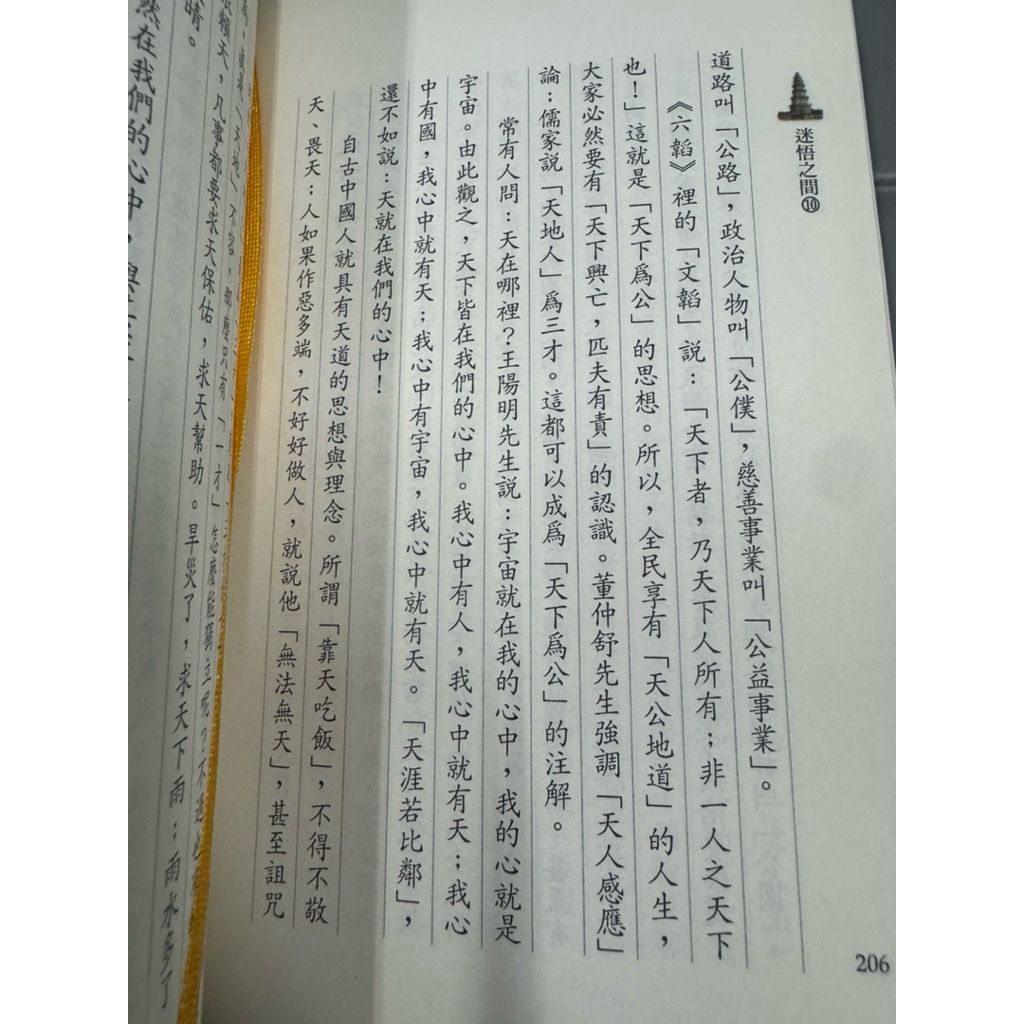 迷悟之間⑩
道路叫「公路」，政治人物叫「公僕」，慈善事業叫「公益事業」。
《六韜》裡的「文韜」說：「天下者，乃天下人所有；非一人之天下
也！」這就是「天下為公」的思想。所以，全民享有「天公地道」的人生，
大家必然要有「天下興亡，匹夫有責」的認識。董仲舒先生強調「天人感應」
論；儒家說「天地人」為三才。這都可以成為「天下為公」的注解。
常有人問：天在哪裡？王陽明先生說：宇宙就在我的心中，我的心就是
宇宙。由此觀之，天下皆在我們的心中。我心中有人，我心中就有天；我心
中有國，我心中就有天；我心中有宇宙，我心中就有天。「天涯若比鄰」，
還不如說：天就在我們的心中！
自古中國人就具有天道的思想與理念。所謂「靠天吃飯」，不得不敬
天、畏天；人如果作惡多端，不好好做人，就說他「無法無天」，甚至詛咒
206
不容，那麼只有「一才」怎麼能獨立呢？不
賴天，凡事都要求天保佑，求天幫助。旱災了，求天下雨；雨水多了
晴。
然在我們的心中，與